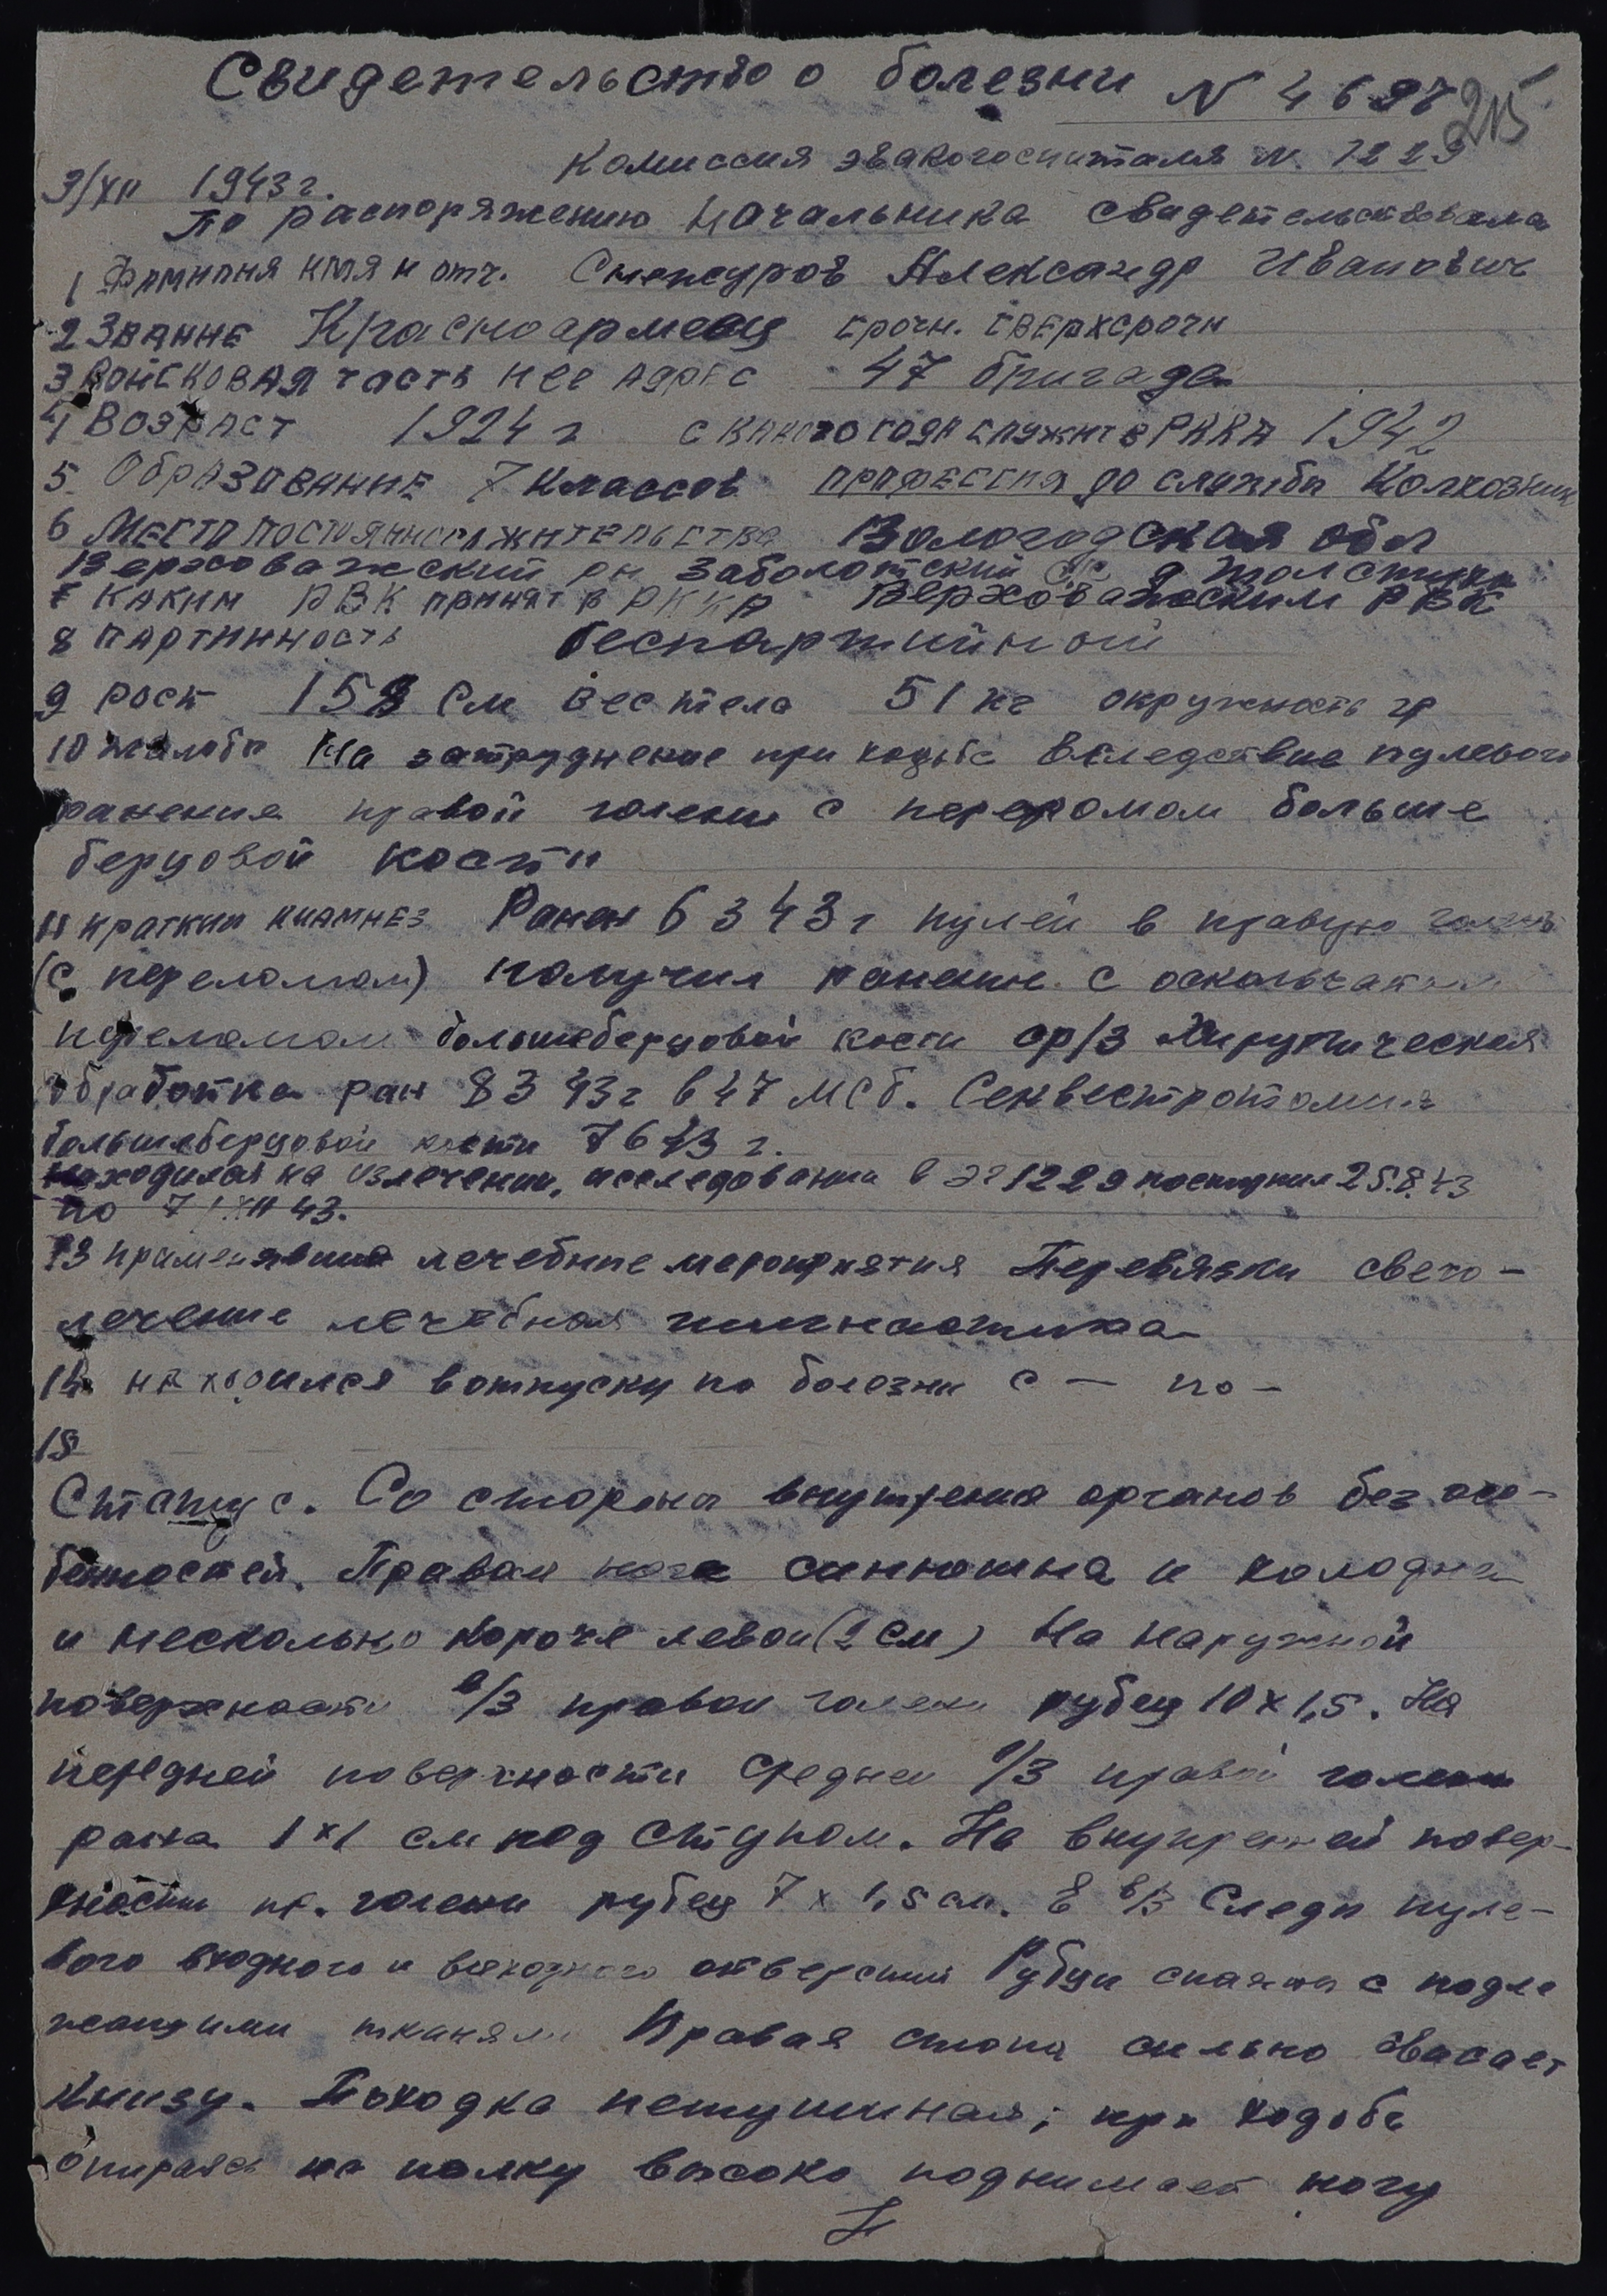 Свидетельство о болезни N 4697
215
Комиссия эвакогоспиталя N. 1229
3/XII 1943 г.
По распоряжению Начальника свидетельствовала
1 Фамилия имя и отч. Александр Иванович
2 Звание Красноармеец срочн. сверхсрочн
3 Войсковая часть и ее адрес 47 бригада
4 Возраст 1924 г с какого года служит в РККА 1942
5 Образование 7 классов профессия до службы Колхозник
6 Место постоянного жительства Вологодская обл
Верховажский рн Заболотский с/с д
7 Каким РВК принят в РККА Верховажским РВК
8 партийность беспартийный
9 рост 158 см вес тела 51 кг окружность гр
10 жалобы На затруднение при ходьбе вследствие пулевого
ранения правой голени с переломом больше
берцовой кости
11 краткий анамнез Ранен 6 3 43 г пулей в правую голень
(с переломом) получил ранение с оскольчатым
переломом большеберцовой кости ср/3 Хирургическая
обработка ран 8 3 43 г в 47 МСБ. Секвестротомия
большеберцовой кости 7 6 43 г.
находился на излечении, иследовании в ЭГ 1229 поступил 25.8.43
по 7/XII 43.
13 применявшия лечебные мероприятия Перевязки свето-
лечение лечебная гимнастика
14 находился в отпуску по болезни с — по —
15
Статус. Со стороны внутрения органов без осо-
бенностей. Правая нога синюшна и холодна
и несколько короче левои (2 см) На наружной
поверхности в/3 правои голени рубец 10 х 1,5. На
передней поверхности среднеи 1/3 правой голени
рана 1 х 1 см под струпом. На внутренней повер-
хности пр. голени рубец 7 х 1,5 см. В в/3 Следы пуле-
вого входного и выходного отверстий Рубцы спаяны с подле
жащими тканями Правая стопа сильно свисает
книзу. Походка петушиная; при ходьбе
опираясь на палку высоко поднимает ногу